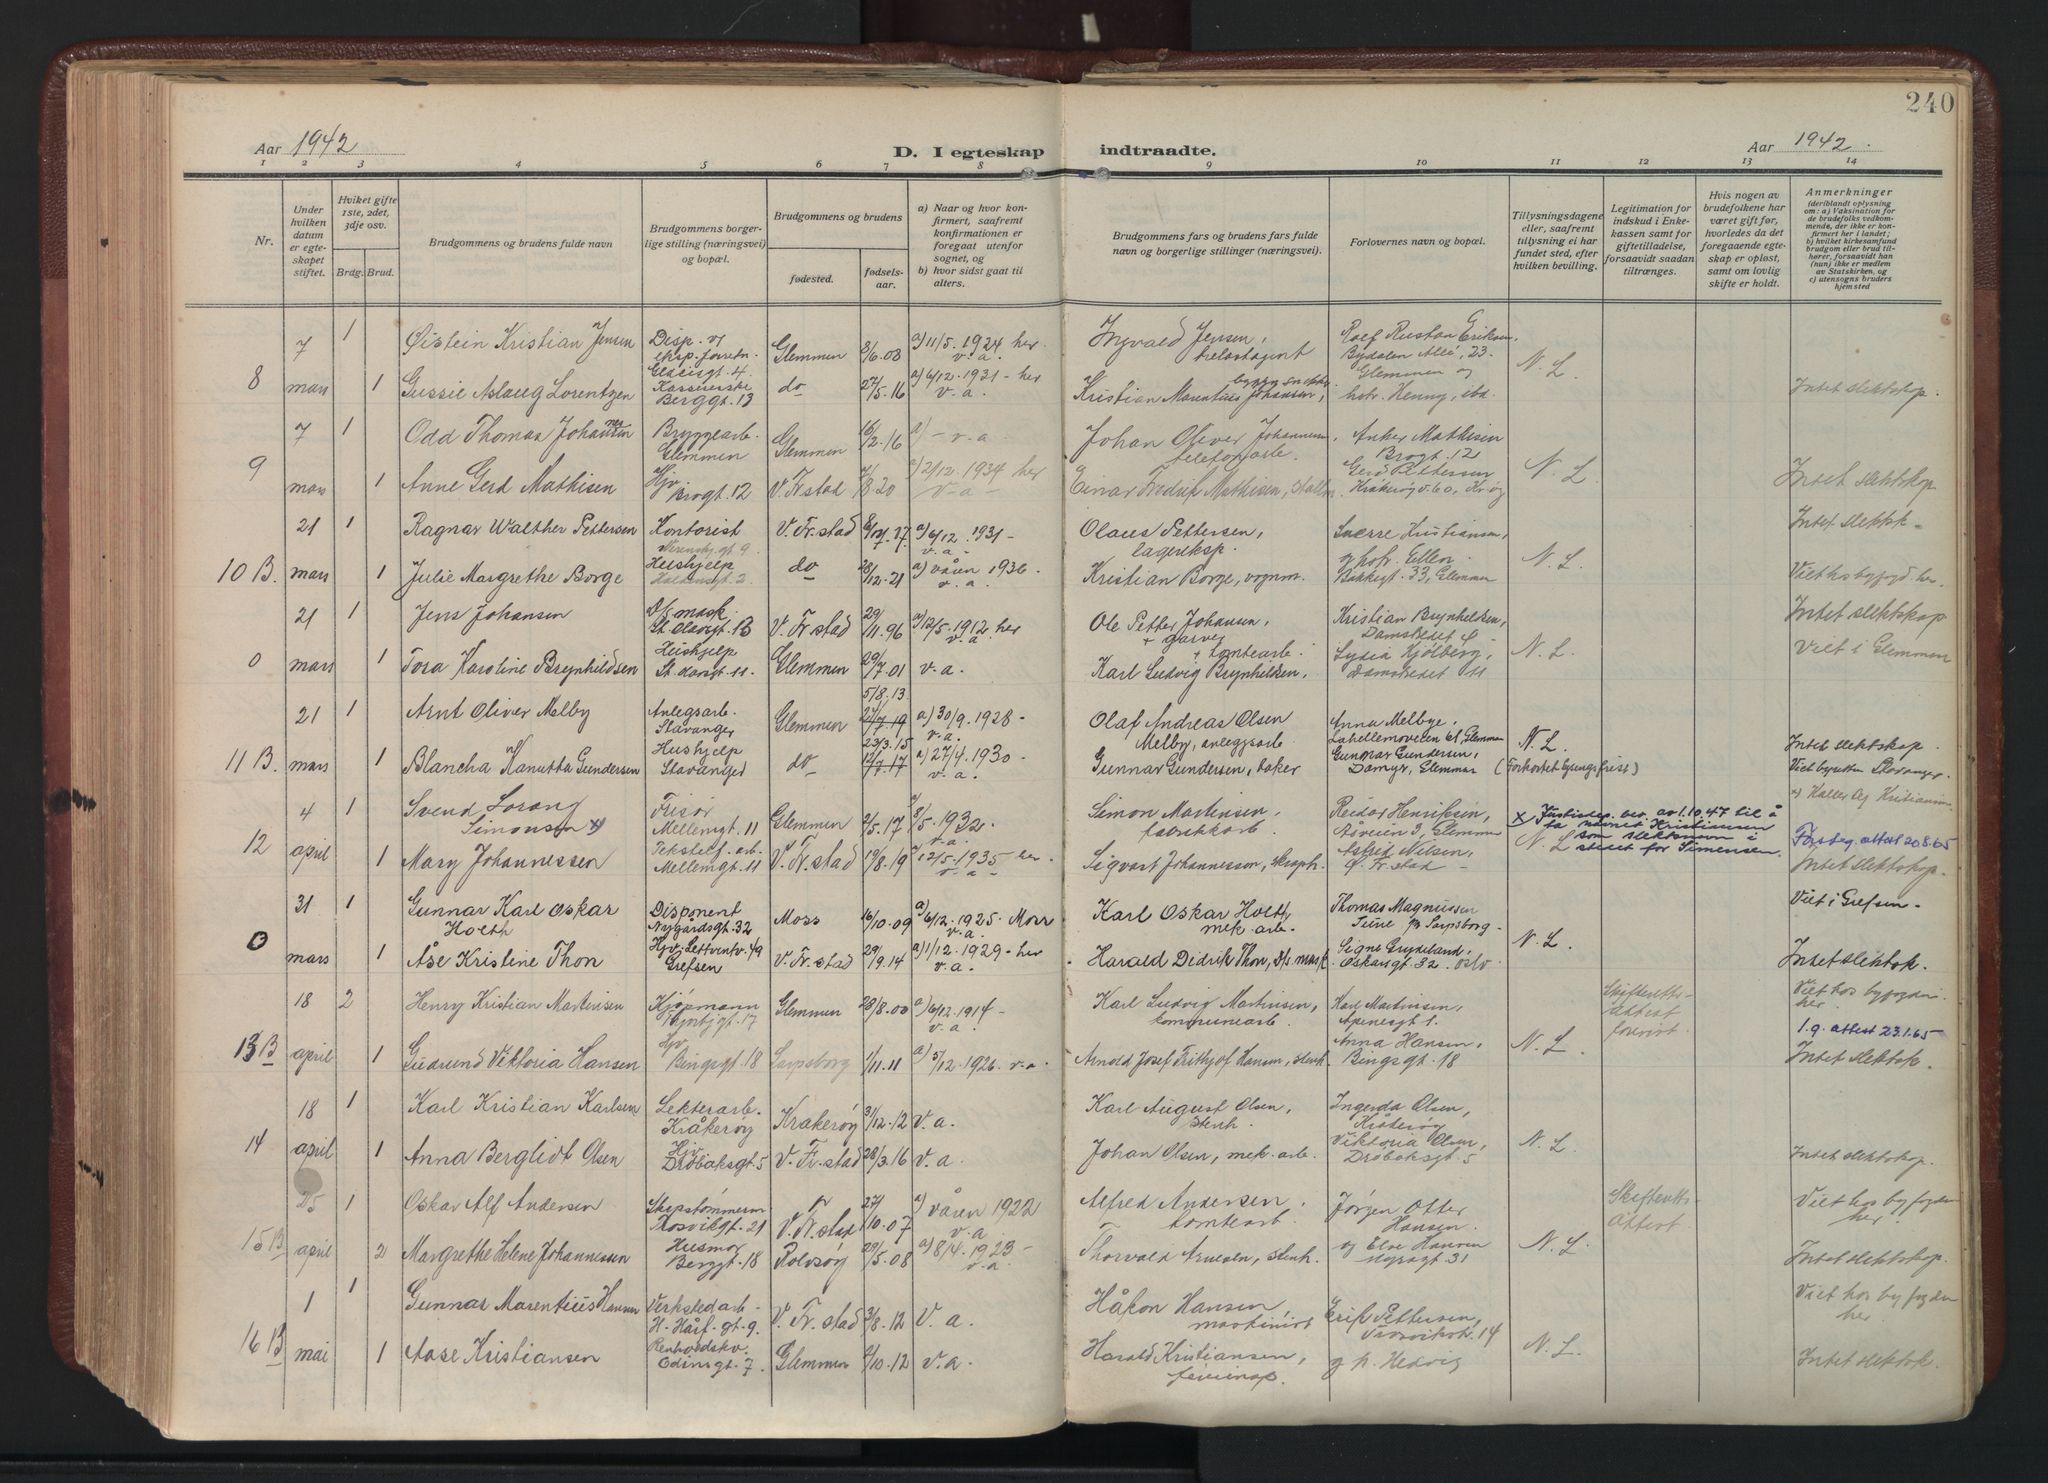 240
Aar 1942
D. I egteskap indtraadte.
Aar 1942.
1 2 3 4 5 6 7 8 9 10 11 12 13 14
Nr.
Under hvilken datum er egteskapet stiftet.
Hvilket gifte 1ste, 2det, 3dje osv.
Brdg. Brud.
Brudgommens og brudens fulde navn
Brudgommens borgerlige stilling (næringsvei) og bopæl.
Brudgommens og brudens
fødested. fødselsaar.
a) Naar og hvor konfirmert, saafremt konfirmationen er foregaat utenfor sognet, og
b) hvor sidst gaat til alters.
Brudgommens fars og brudens fars fulde navn og borgerlige stillinger (næringsvei).
Forlovernes navn og bopæl.
Tillysningsdagene eller, saafremt tillysning ei har fundet sted, efter hvilken bevilling.
Legitimation for indskud i Enkekassen samt for giftetilladelse, forsaavidt saadan tiltrænges.
Hvis nogen av brudefolkene har været gift før, hvorledes da det foregaaende egteskap er opløst, samt om lovlig skifte er holdt.
Anmerkninger (deriblandt oplysning om: a) Vaksination for de brudefolks vedkommende, der ikke er konfirmert her i landet; b) hvilket kirkesamfund brudgom eller brud tilhører, forsaavidt han (hun) ikke er medlem av Statskirken, og c) utensogns bruders hjemsted
7 1 Øistein Kristian Jensen Disp. og eksp. forretn. Glemmen 8/6.03 a) 11/5.1924 her v.a. Ingvald Jensen, Bydalen Allé, 23. Glemmen og
8 mars 1 Gussie Aslaug Lorentzen Kasserske Berggt. 13 do 27/5.16 a) 6/12.1931 - her v.a. Kristian Marentius Johansen, hstr. Henny, ibd. N. L. Intet slektskap.
7 1 Odd Thomas Johannesen Bryggearb. Glemmen Glemmen 16/2.16 a) - v.a. Johan Oliver Johannesen, Anker Mathisen Brogt. 12
9 mars 1 Anne Gerd Mathisen Hjv. Brogt. 12 V. Fr.stad 7/8.20 a) 2/12.1934 her v.a. - Einar Fredrik Mathisen, Gerd Pettersen N. L. Intet slektskap
21 1 Ragnar Walther Pettersen Kontorist V. Fr.stad a) 6/12.1931 - v.a. - Olaus Pettersen, lagereksp. Sverre Kristiansen, og hstr. Ellen Intet slektsk -
10 B. mars 1 Julie Margrethe Borge Heishjelp do 28/12.21 a) våren 1936. v.a. Kristian Borge, vognm. Bakkegt. 33, Glemmen N. L. Viet hos byfogd. her.
21 1 Jens Johansen St. Olavsgt. 13 V. Fr.stad 29/11.96 a) 12/5.1912 her v.a Ole Petter Johansen, + garver Kristian Brynhildsen, Damstedet 9 Intet slektskap
0 mars 1 Tora Karoline Brynhildsen Heishjelp Glemmen 29/7.01 v.a. Karl Ludvig Brynhildsen, + tomtearb. Lydia Kjølberg, Damstedet 11 N. L. Viet i Glemmen
21 1 Arnt Oliver Melby Anlegsarb. Stavanger Glemmen 5/8.13 27/7.19 a) 30/9.1928 - v.a. Olaf Andreas Olsen Melby, anleggsarb Anna Melbye, Lahellemoveien 61, Glemmen
11 B. mars 1 Blancha Kanutta Gundersen Hushjelp Stavanger do 23/3.15 12/7.17 a) 27/4.1930 - v.a. Gunnar Gundersen, baker Gunnar Gundersen, Damyr, Glemmen N. L. (Forkortet lysningsfrist) Intet slektskap. Viet byretten Stavanger
4 1 Svend Lorang Simonsen x) Frisør Mellemgt. 11 Glemmen 2/5.17 a) 8/5.1932. v.a. Simon Martinsen, fabrikkarb. Reidar Henriksen, Åsveien 3, Glemmen x Justisdep. bev. av 1.10.47 til å ta navnet Kristiansen som slektsnavn i stedet for Simonsen. x) Kaller seg Kristiansen
12 april 1 Mary Johannessen Tekstilf. arb. Mellemgt. 11 V. Fr.stad 19/8.19 a) 12/5.1935 - her v.a - Sigvart Johannesson, Astrid Nilsen, Ø. Fr.stad - N. L. attest 20.8.65 Intet slektskap.
31 1 Gunnar Karl Oskar Holth Disponent Nygårdsgt. 32 Moss 16/10.09 a) 6/12.1925. Moss v.a. Karl Oskar Holth, mek. arb. Thomas Magnussen Tune pr Sarpsborg - Viet i Grefsen.
0 mars 1 Åse Kristine Thon Hjv. Grefsen V. Fr.stad 29/9.14 a) 1/12.1929 - her v.a. Harald Didrik Thon, Signe Grydeland, Oskarsgt. 32. Oslo N. L. Intet slektsk.
18 2 Henry Kristian Martinsen Kjøpmann Glemmen 28/8.00 a) 6/12.1914 - v.a. Karl Ludvig Martinsen, kommunearb. Karl Martinsen, Apenesgt 1. Skifteretts-attest forevist. Viet hos byfogden her.
13 B april 1 Gudrund Viktoria Hansen Hjv Bingsgt. 18 Sarpsborg 1/11.11 a) 5/12.1926. v.a. Arnold Josef Frithjof Hansen, stenh. Anna Hansen, Bingsgt. 18 N. L. 1.g. attest 23.1.65 Intet slektsk.
18 1 Karl Kristian Karlsen Kråkerøy Kråkerøy 31/12.12 v.a. Karl August Olsen, stenh. Ingerda Olsen, Kråkerøy
14 april 1 Anna Berglidt Olsen Hjv. Drøbaksgt. 5 V. Fr.stad 28/3.16 v.a. Johan Olsen, mek. arb. Viktoria Olsen, Drøbaksgt 5 N. L. Intet slektskap.
25 1 Oskar Alf Andersen Skipstømmerm Mosvikgt. 21 V. Fr.stad 27/10.07 a) våren 1922 v.a Alfred Andersen, tomtearb. Jørgen Otter Hansen. Skifteretts-attest Viet hos byfogden her.
15 B april 2 Margrethe Helene Johannessen Husmor Berggt. 18 Rolvsøy 29/5.08 a) 8/4.1923 - v.a. Thorvald Arnesen, stenh. og Elve Hansen 31 N. L. Intet slektskap.
1 1 Gunnar Marentius Hansen Verkstedarb - H. Hårf. gt. 9. V. Fr.stad 31/8.12 V. a. Håkon Hansen, maskinist Erik Pettersen, 14 Viet hos byfogden her
16 B mai 1 Aase Kristiansen Renholdsk. Odinsgt. 7 Glemmen 2/10.12 v.a. Harald Kristiansen, g h. Hedvig N. L. Intet slektsk.